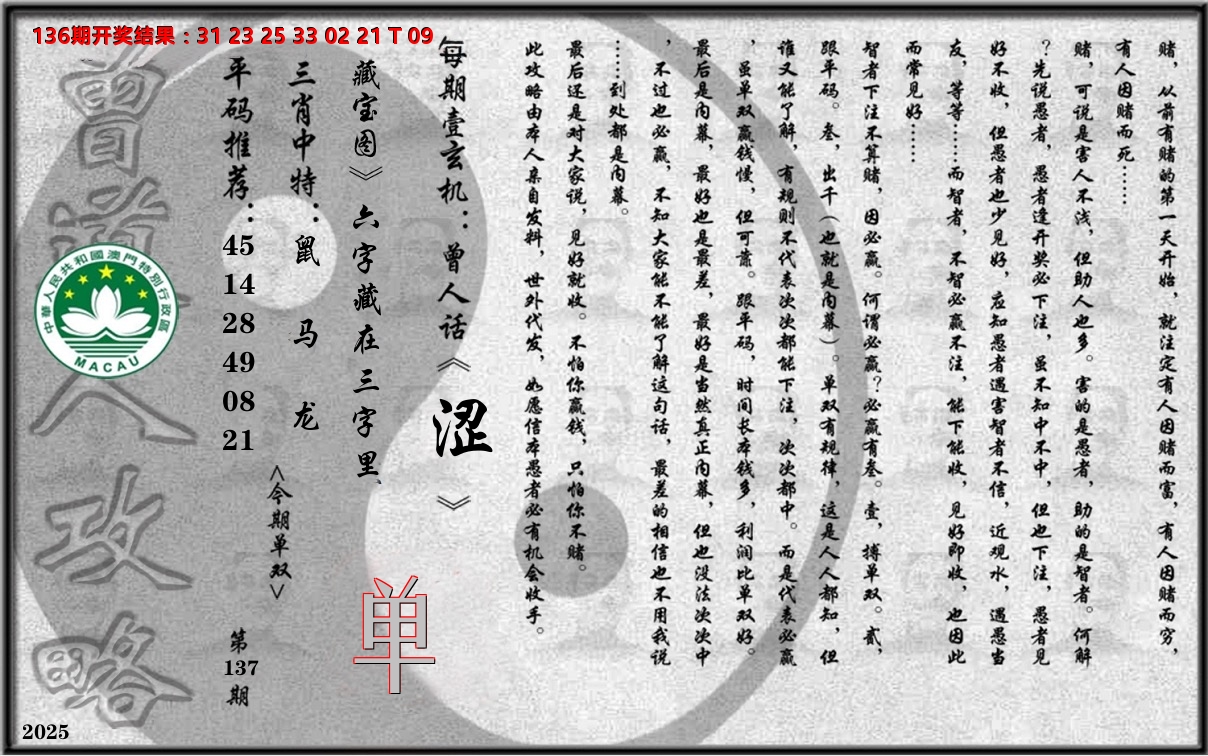 136期开奖结果：31 23 25 33 02 21 T 09
赌，从前有赌的第一天开始，就注定有人因赌而富，有人因赌而穷，
有人因赌而死……
赌，可说是害人不浅，但助人也多。害的是愚者，助的是智者。何解
？先说愚者，愚者逢开奖必下注，虽不知中不中，但也下注，愚者见
好不收，但愚者也少见好，应知愚者遇害智者不信，近观水，遇愚当
友，等等……而智者，不智必赢不注，能下能收，见好即收，也因此
而常见好……
智者下注不算赌，因必赢。何谓必赢？必赢有叁。壹，搏单双。贰，
跟平码。叁，出千（也就是内幕）。单双有规律，这是人人都知，但
谁又能了解，有规则不代表次次都能下注，次次都中。而是代表必赢
，虽单双赢钱慢，但可靠。跟平码，时间长本钱多，利润比单双好。
最后是内幕，最好也是最差，最好是当然真正内幕，但也没法次次中
，不过也必赢，不知大家能不能了解这句话，最差的相信也不用我说
……到处都是内幕。
最后还是对大家说，见好就收。不怕你赢钱，只怕你不赌。
此攻略由本人亲自发料，世外代发，如愿信本愚者必有机会收手。
每期壹玄机：曾人话《涩》
藏宝图》六字藏在三字里、
单
三肖中特：鼠 马 龙
<今期单双>
平码推荐：45 14 28 49 08 21
第137期
曾道人攻略
中華人民共和國澳門特別行政區
MACAU
2025